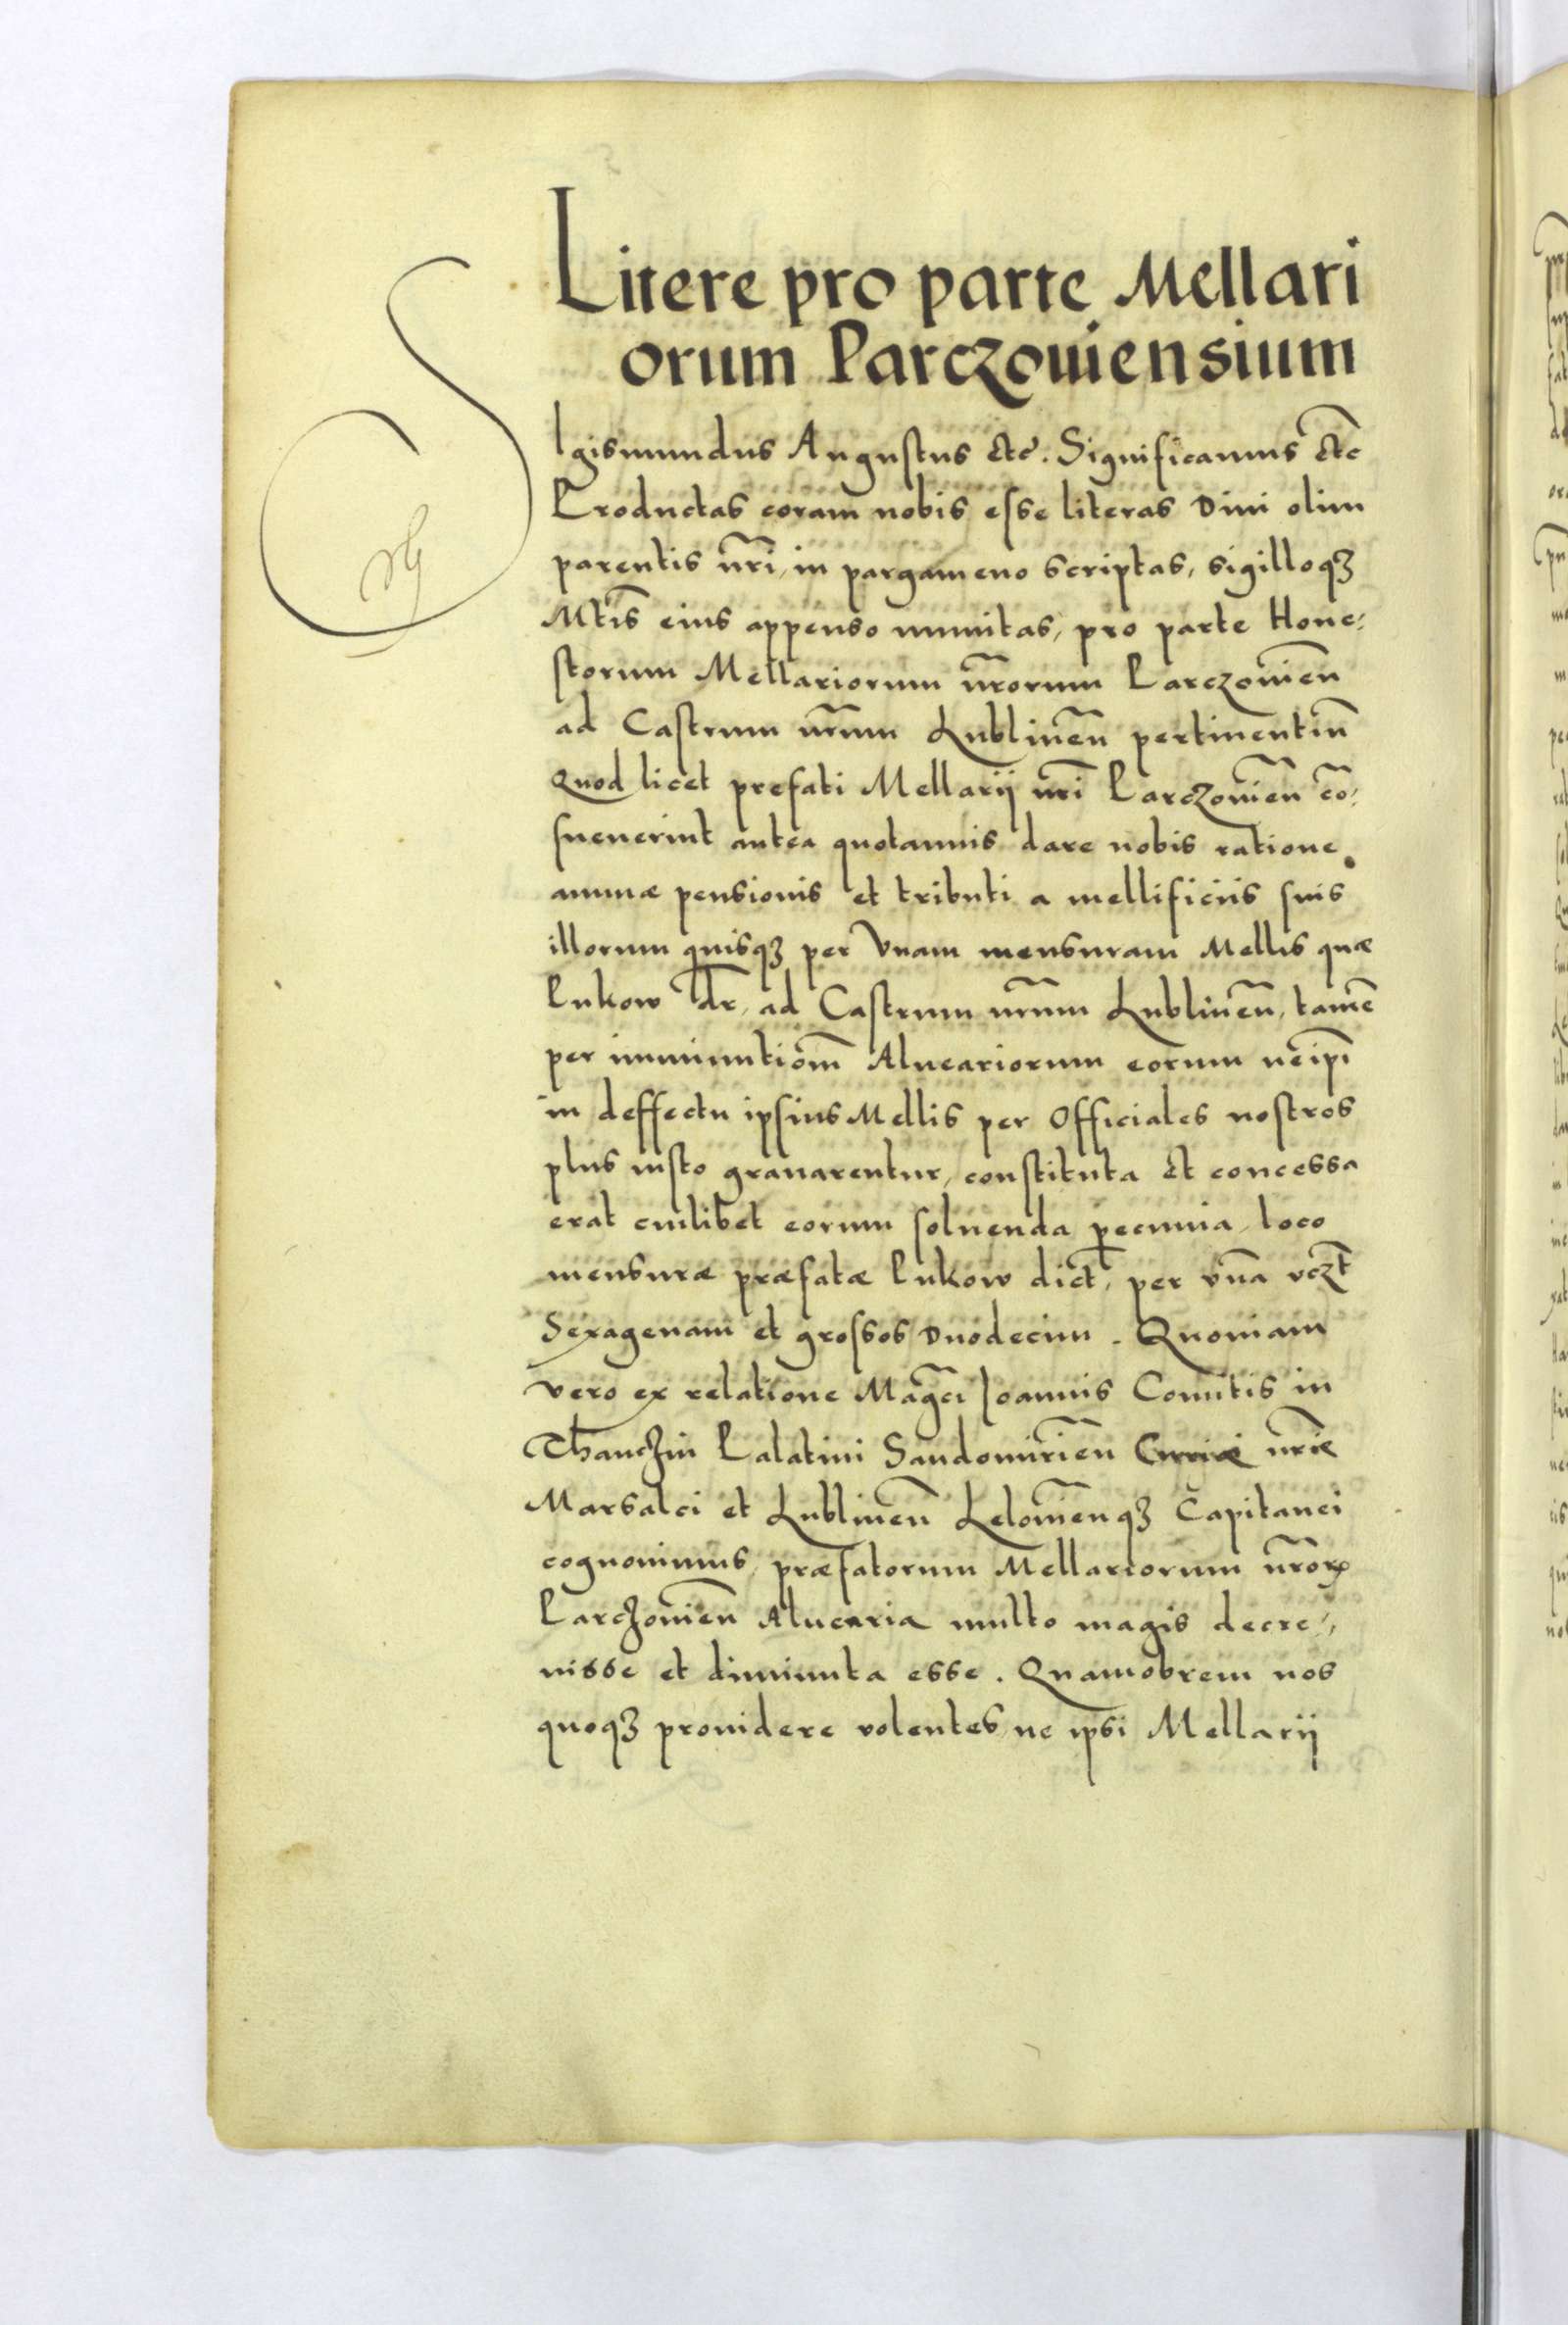 Litere pro parte Mellari
orum Parczouiensium
SIgismundus Augustus etc. Significamus etc
Productas coram nobis esse literas Diui olim
parentis nr̃i, in pargameno scriptas, sigilloqꝫ
Mtis̃ eius appenso munitas, pro parte Hone⸗
storum Mellariorum nr̃orum Parczouien̄
ad Castrum nr̃um Lublinen̄ pertinentiū
Quod licet prefati Mellarij nr̃i Parczouien̄ cō⸗
sueuerint antea quotannis dare nobis ratione
annuæ pensionis et tributi a mellificiis suis
illorum quisqꝫ per Vnam mensuram Mellis quæ
Pukow dr̃, ad Castrum nr̃um Lublinen̄, tamē
per imminutiom̃ Alueariorum eorum ne ip̃i
in deffectu ipsius Mellis per Officiales nostros
plus iusto grauarentur, constituta et concessa
erat cuilibet eorum soluenda pecunia, loco
mensuræ præfatæ Pukow dict̃, per vnā vczt̃
Sexagenam et grossos Duodecim. Quoniam
vero ex relatione Magc̃i Joannis Comitis in
Thanczin Palatini Sandomirien̄ Curiæ nr̃æ
Marsalci et Lublinen̄ Lelouien̄qꝫ Capitanei
cognouimus, præfatorum Mellariorum nr̃orꝝ
Parczouien̄ Aluearia multo magis decre⸗
uisse et diminuta esse. Quamobrem nos
quoqꝫ prouidere volentes, ne ipsi Mellarij